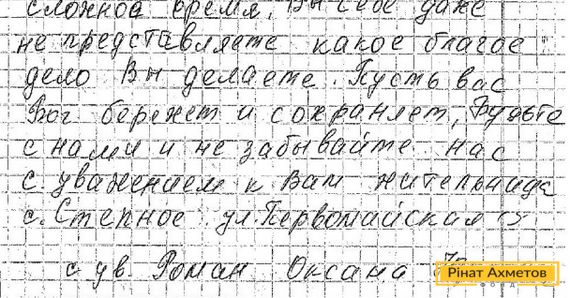 сложное время, Вы себе даже
не представляете какое благое
дело Вы делаете. Пусть вас
Бог бережет и сохраняет, Будьте
с нами и не забывайте нас
с уважением к Вам жительница
с. Степное ул. Первомайская
с ув. Роман Оксана
Рінат Ахметов
Фонд